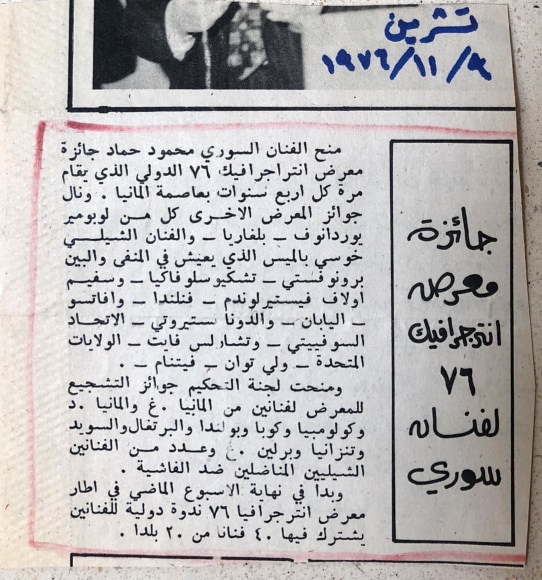 تشرين
١٩٧٦/١١/٩
جائزة
معرض
انترجرافيك
٧٦
لفنان
سوري
منح الفنان السوري محمود حماد جائزة
معرض انتراجرافيك ٧٦ الدولي الذي يقام
مرة كل اربع سنوات بعاصمة المانيا . ونال
جوائز المعرض الاخرى كل من لوبومير
يوردانوف ــ بلغاريا ــ والفنان الشيلي
خوسي بالميس الذي يعيش في المنفى والبين
برونوفستي ــ تشكيوسلوفاكيا ــ وسفيم
اولاف فيستيرلوندم ــ فنلندا ــ وافاتسو
ــ اليابان ــ والدونا ستيروتي ــ الاتحاد
السوفييتي ــ وتشارلس فايت ــ الولايات
المتحدة ــ ولي توان ــ فيتنام ــ .
ومنحت لجنة التحكيم جوائز التشجيع
للمعرض لفنانين من المانيا .غ والمانيا .د
وكولومبيا وكوبا وبولندا والبرتغال والسويد
وتنزانيا وبرلين .غ وعدد من الفنانين
الشيليين المناضلين ضد الفاشية .
وبدا في نهاية الاسبوع الماضي في اطار
معرض انترجرافيا ٧٦ ندوة دولية للفنانين
يشترك فيها ٤٠ فنانا من ٢٠ بلدا .